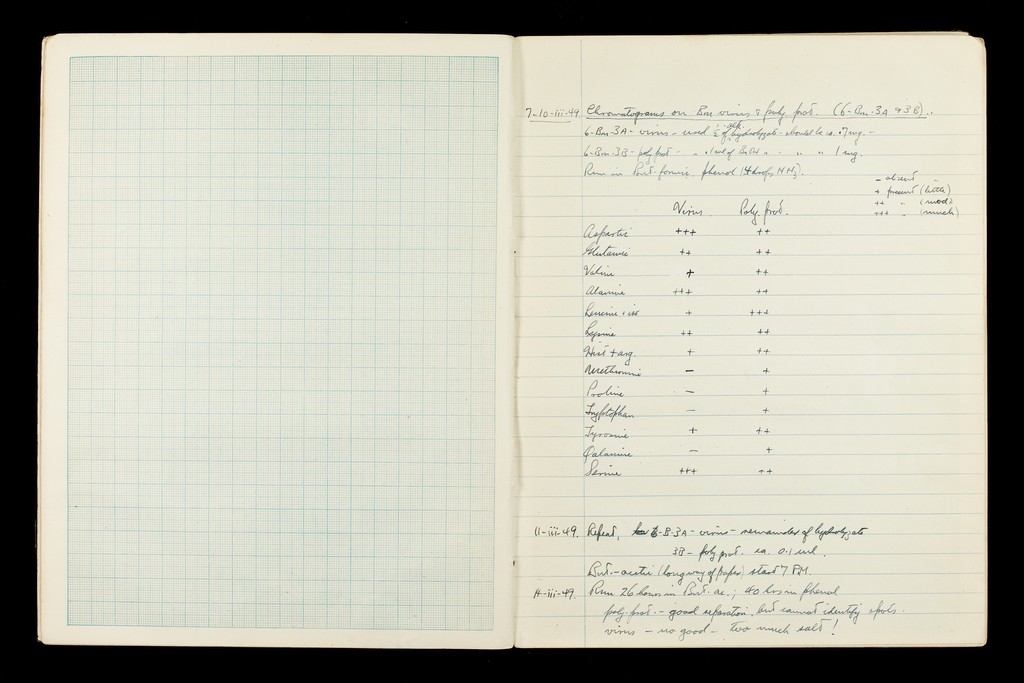 7-10-iii-49 Chromatograms on Bm virus & poly. prot. (6-Bm-3A & 3B)..
6-Bm-3A - virus - used ½ of alk. hydrolyzate - should be ca. .7 mg. -
6-Bm-3B - poly prot - " .1 ml of " " " 1 mg.
Run in But-formic, phenol (4 drops NH3).
- absent
+ present (little)
++ " (mod)
+++ " (much)
Virus Poly. prot.
Aspartic +++ ++
Glutamic ++ ++
Valine + ++
Alanine +++ ++
Leucine + iso + +++
Lysine ++ ++
Hist + arg. + ++
Methionine - +
Proline - +
Tryptophan - +
Tyrosine + ++
Φalanine - +
Serine +++ ++
11-iii-49. Repeat, 6-B-3A - virus - remainder of hydrolyzate
3B - poly prot. ca. 0.1 ml.
But.-acetic (long way of paper) start 7 PM.
14-iii-49. Run 26 hours in But. ac.; 40 hrs in phenol
poly prot. - good separation, but cannot identify spots.
virus - no good - too much salt!